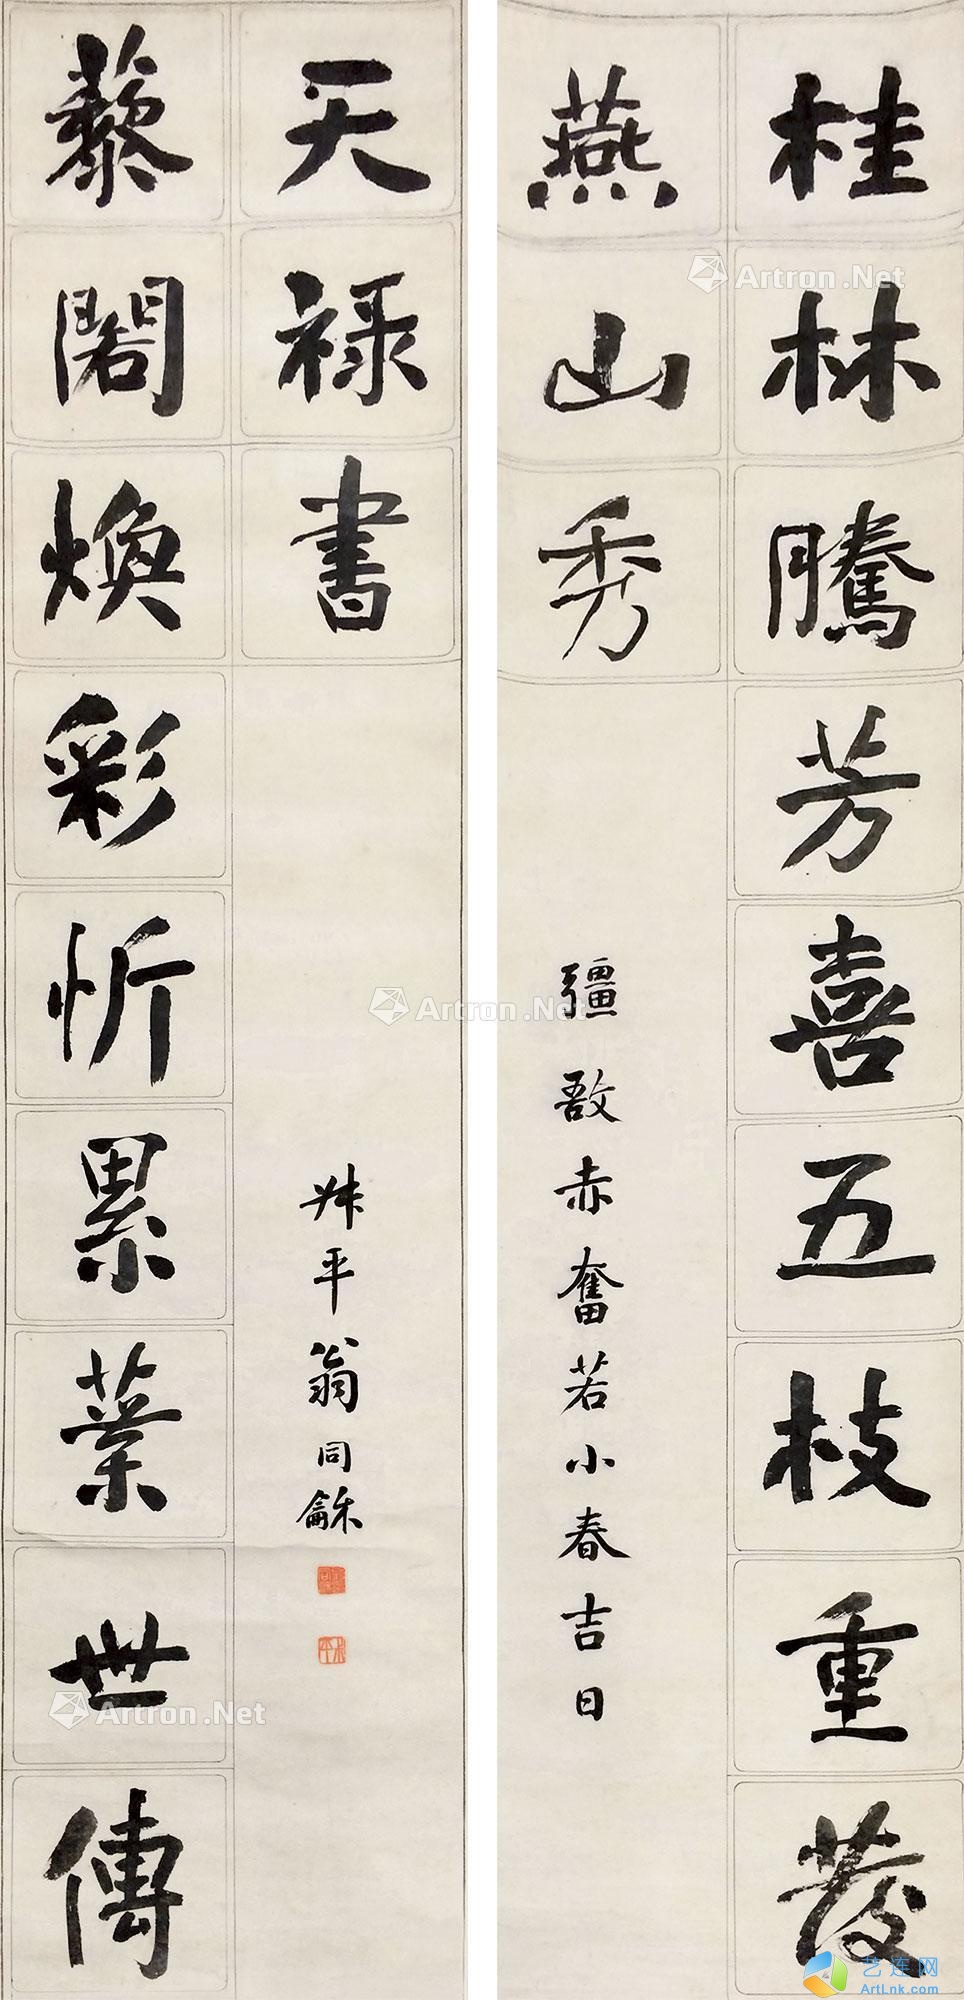 桂林騰芳喜五枝重發
燕山秀
彊敔赤奮若小春吉日
藜閣煥彩忻累葉世傳
天禄書
叔平翁同龢
Artron.Net
Artron.Net
Artron.Net
艺连网
ArtLnk.com